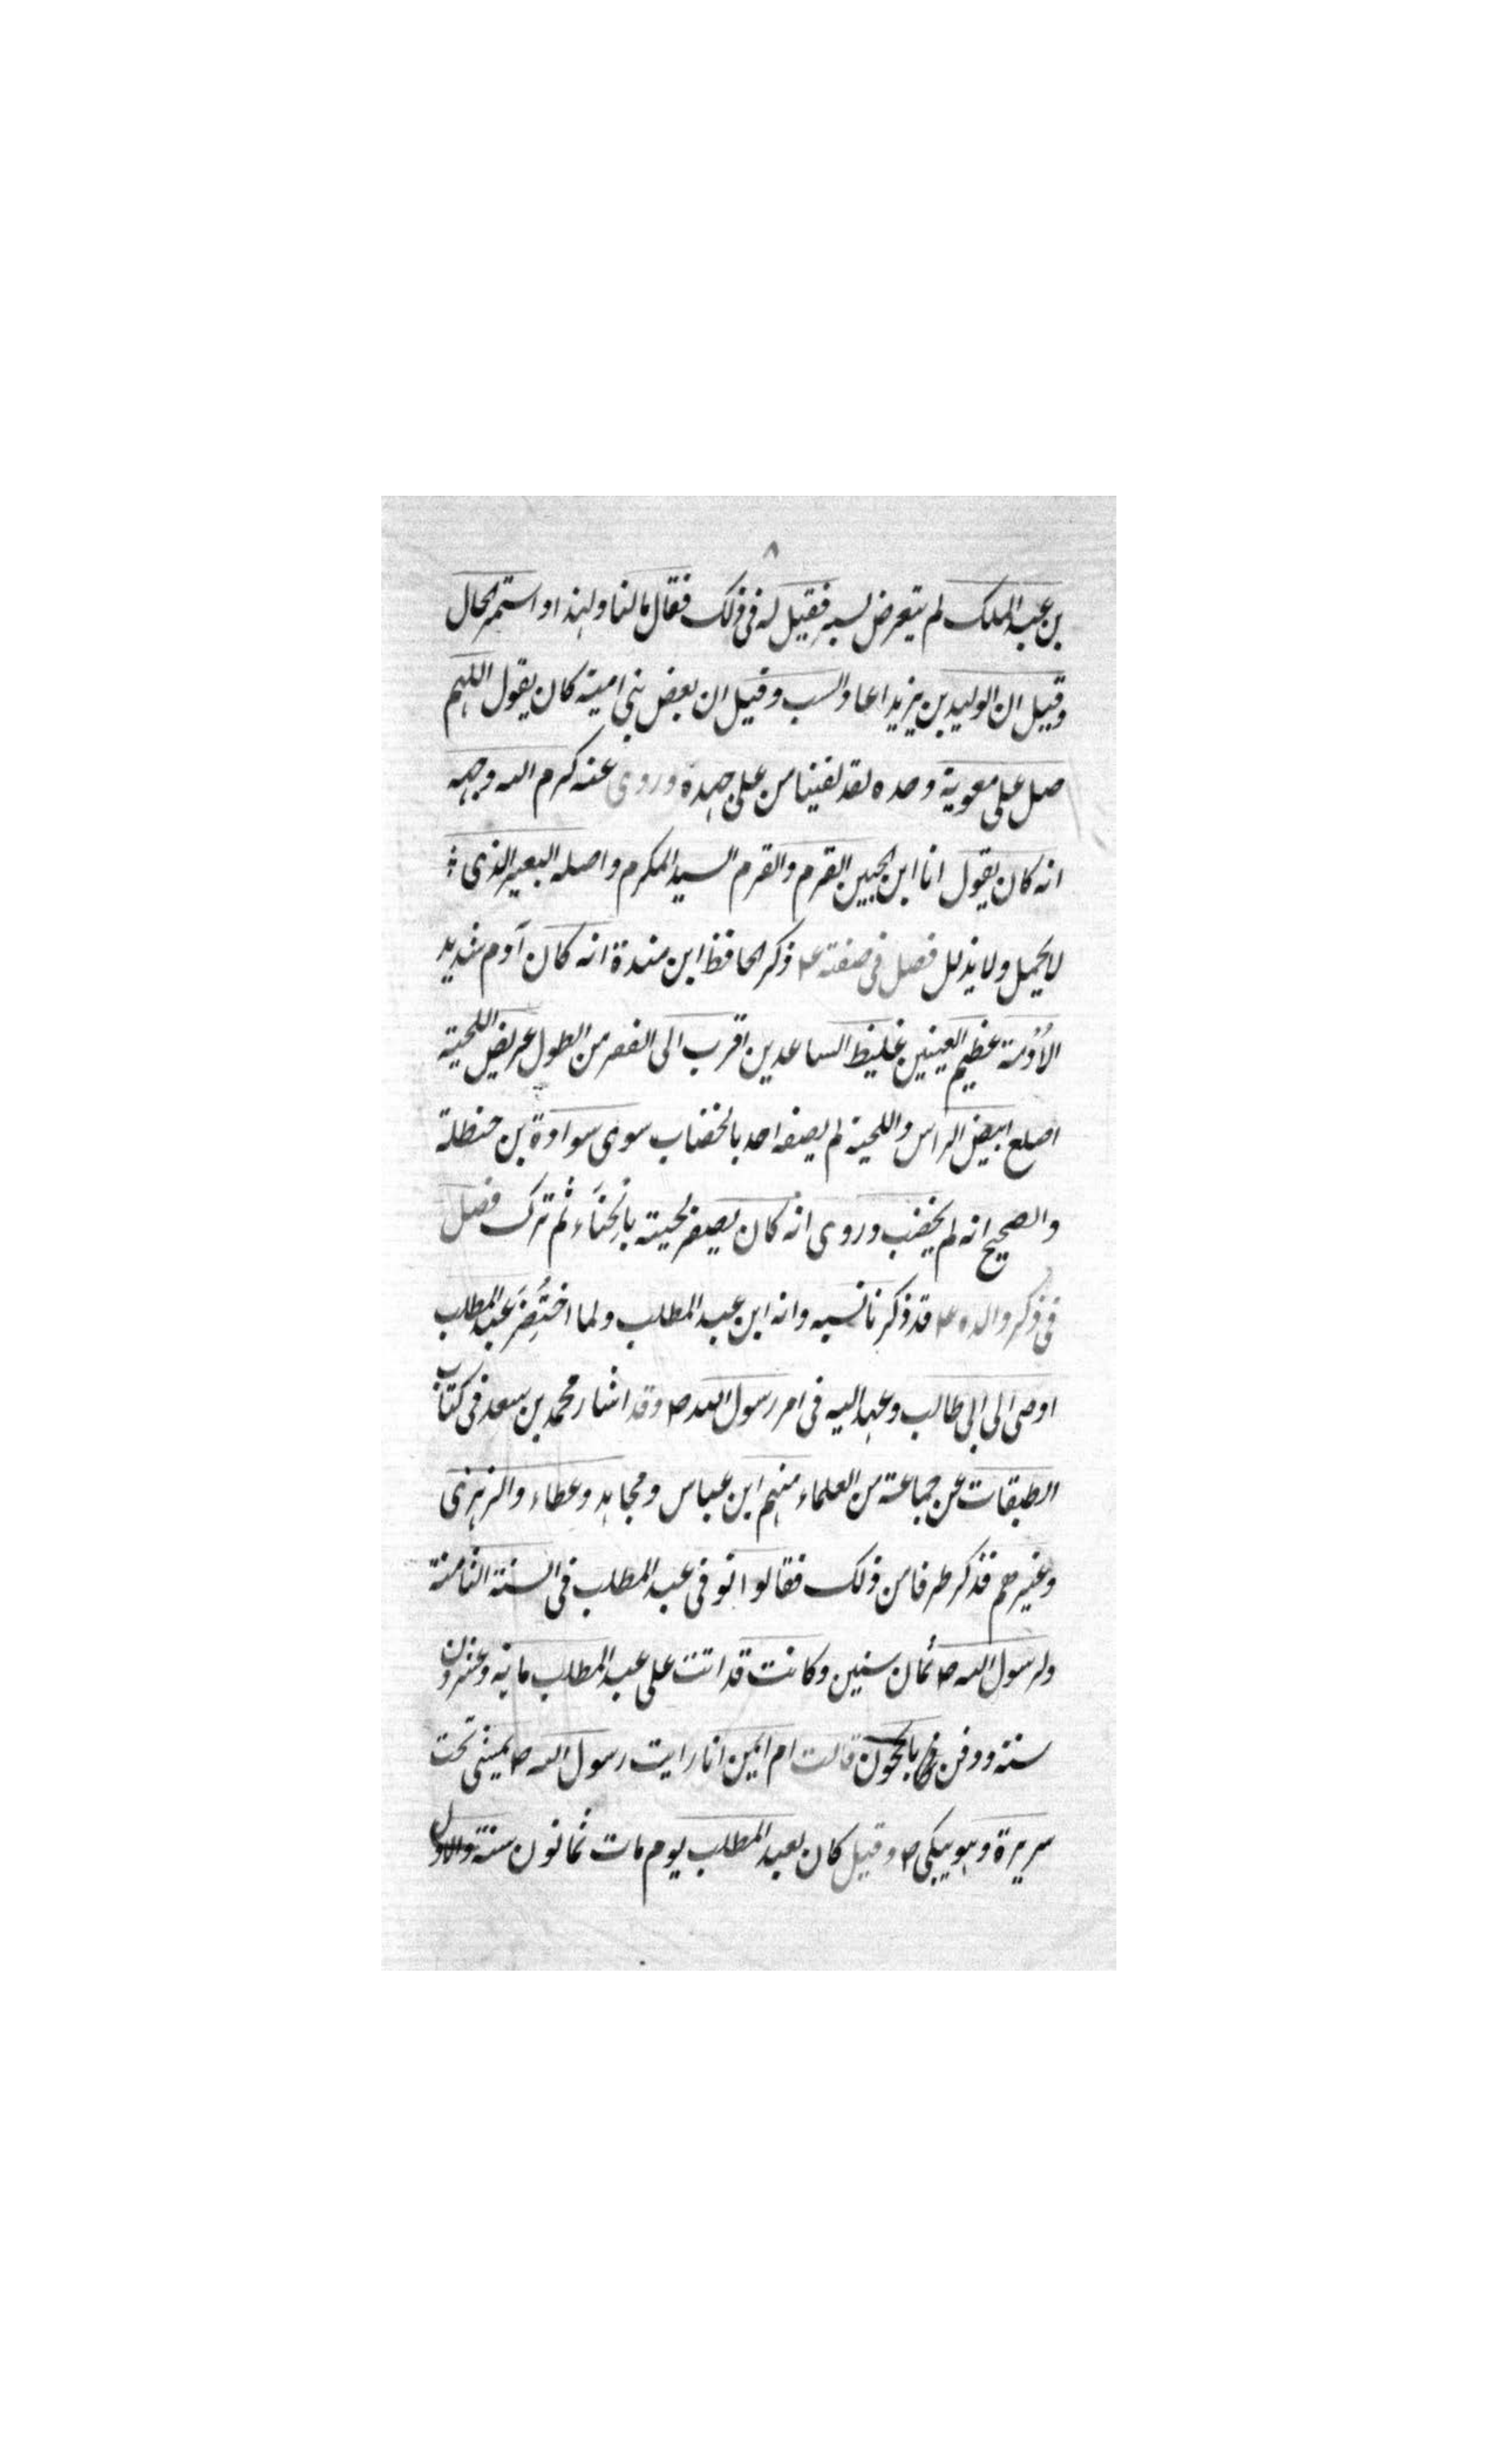 ٨
بن عبد الملك لم يتعرض لسبه فقيل له فى ذلك فقال مالنا ولهذا واستمر الحال
وقيل ان الوليد بن يزيد اعاد السب وقيل ان بعض بنى امية كان يقول اللهم
صل على معوية وحده لقد لقينا من على جهده وروى عنه كرم الله وجهه
انه كان يقول انا ابن الجبين القرم والقرم السيد المكرم واصله البعير الذى
لا يحمل ولا يذلل فصل فى صفته ع ذكر الحافظ ابن مندة انه كان آدم شديد
الأُدْمَة عظيم العينين غليظ الساعدين اقرب الى القصر من الطول عريض اللحية
اصلع ابيض الراس واللحية لم يصفه احد بالخضاب سوى سوادة بن حنظلة
والصحيح انه لم يخضب وروى انه كان يصفر لحيته بالحناء ثم ترك فصل
فى ذكر والده ع قد ذكرنا نسبه وانه ابن عبد المطلب ولما احتُضِرَ عبد المطلب
اوصى الى ابى طالب وعهد اليه فى امر رسول الله ص وقد اشار محمد بن سعد فى كتاب
الطبقات عن جماعة من العلماء منهم ابن عباس ومجاهد وعطاء والزهرى
وغيرهم فذكر طرفا من ذلك فقالوا توفى عبد المطلب فى السنة الثامنة
ولرسول الله ص ثمان سنين وكانت قد اتت على عبد المطلب مائة وعشرون
سنة ودفن بالحجون قالت ام ايمن انا رايت رسول الله ص يمشى تحت
سريرة وهو يبكى ص وقيل كان لعبد المطلب يوم مات ثمانون سنة والاول